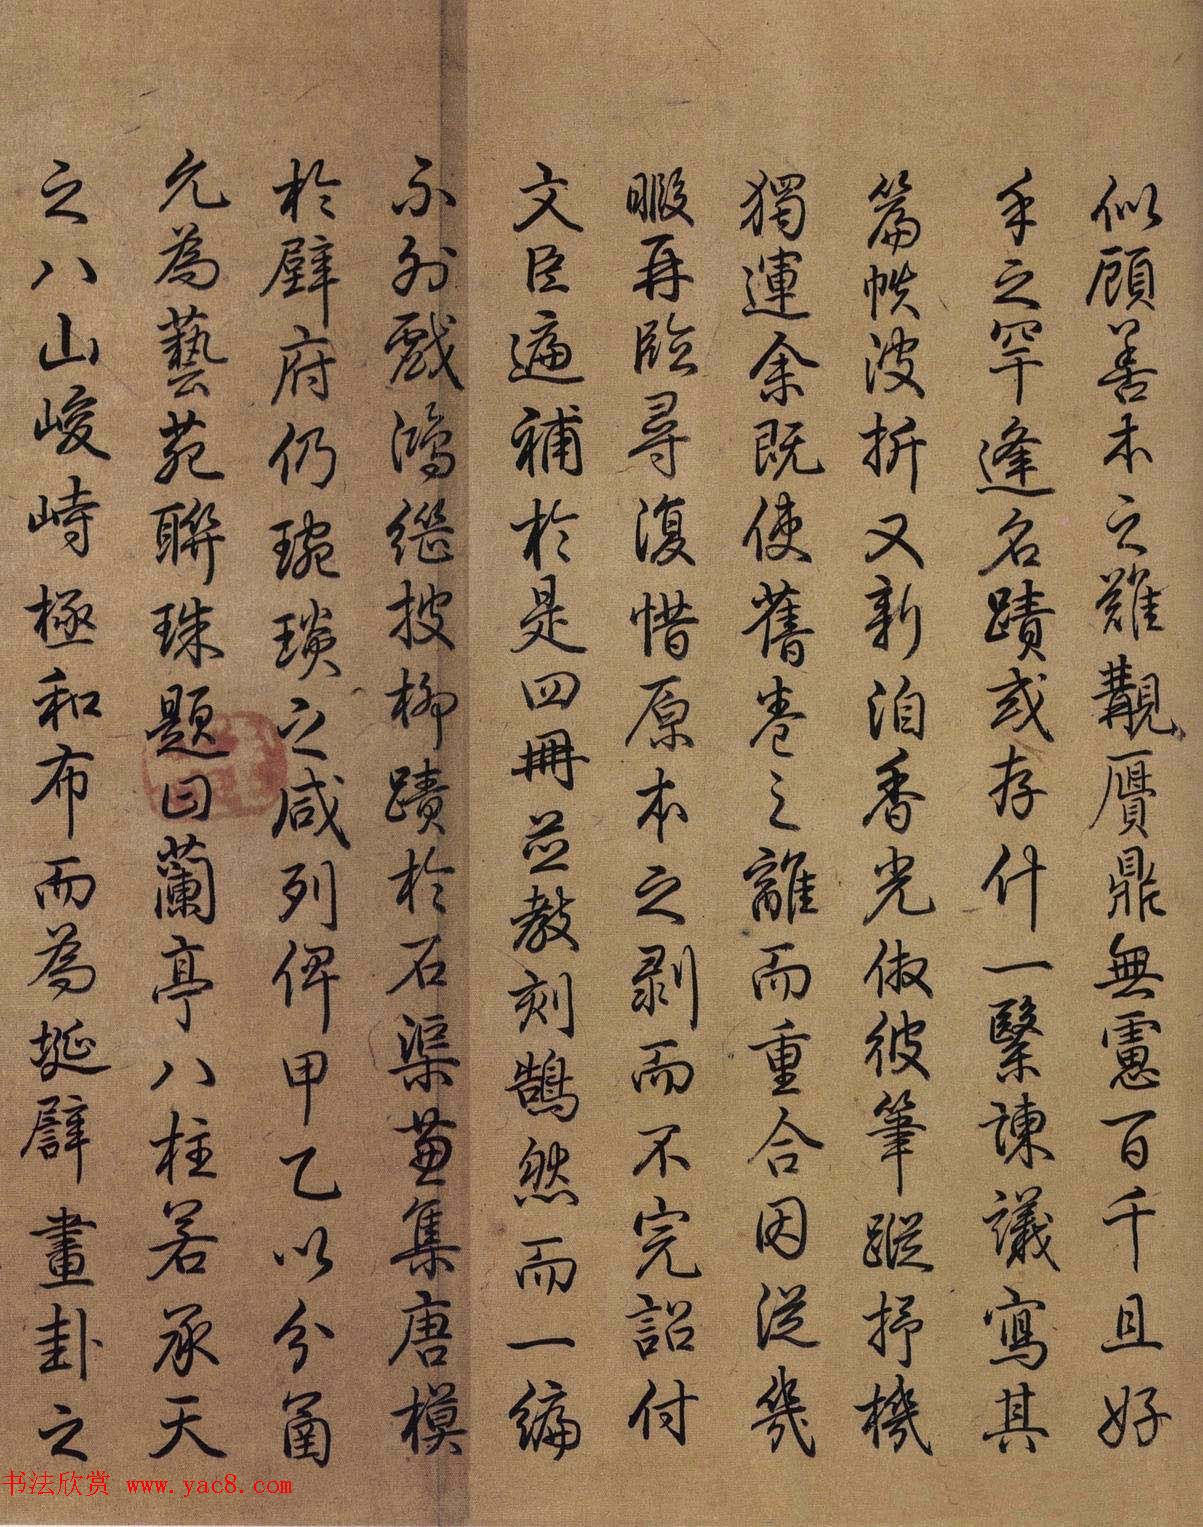 似顧善本之難覯贋鼎無慮百千且好
手之罕逢名蹟或存什一繄諫議寫其
篇帙波折又新洎香光倣彼筆蹤抒機
獨運余既使舊卷之離而重合因從幾
暇再臨尋復惜原本之剥而不完詔付
文臣適補於是四冊並教刻鵠然而一編
不外戲鴻繼搜柳蹟於石渠兼集唐模
於壁府仍琬琰之咸列俾甲乙以分函
允為藝苑聯珠題曰蘭亭八柱若承天
之八山峻峙極和布而為埏譬畫卦之
书法欣赏 www.yac8.com